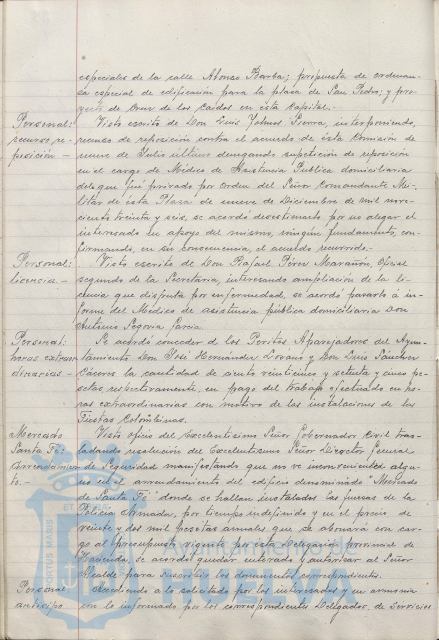 especiales de la calle Alonso Barba; propuesta de ordenan-
za especial de edificación para la plaza de San Pedro; y pro-
yecto de Cruz de los Caidos en ésta Capital.
Personal: recurso re-
posición - Visto escrito de Don Luis
Sierra, interponiendo,
recurso de reposición contra el acuerdo de ésta Comisión de
nueve de Julio último denegando su petición de reposición
en el cargo de Médico de Asistencia Publica domiciliaria
del que fué privado por Orden del Señor Comandante Mi-
litar de ésta Plaza de nueve de Diciembre de mil nove-
ciento treinta y seis, se acordó desestimarlo por no alegar el
interesado en apoyo del mismo, ningún fundamento, con-
firmando, en su consecuencia, el acuerdo recurrido.-
Personal:
licencia - Visto escrito de Don Rafael Pérez Marañón, Oficial
segundo de la Secretaria, interesando ampliación de la li-
cencia que disfruta por enfermedad, se acordó pasarlo á in-
forme del Medico de asistencia pública domiciliaria Don
Segovia Garcia.
Personal:
horas extraor-
dinarias - Se acordó conceder á los Peritos Aparejadores del Ayun-
tamiento Don José Hernández Lozano y Don Luis Sánchez
Cáceres la cantidad de ciento veinticinco y setenta y cinco pe-
setas respectivamente, en pago del trabajo efectuado en ho-
ras extraordinarias con motivo de las instalaciones de las
Fiestas Colombinas.
Mercado
Santa Fé:
Arrendamien-
to. - Visto oficio del Excelentisimo Señor Gobernador Civil tras-
ladando resolución del Excelentisimo Señor Director General
de Seguridad manifestando que no ve inconveniente algu-
no en el arrendamiento del edificio denominado "Mercado
de Santa Fé" donde se hallan instaladas las fuerzas de la
Policia Armada, por tiempo indefinido y en el precio de
veinte y dos mil pesetas anuales que se abonará con car-
go al presupuesto vigente por esta Delegación provincial de
Hacienda, se acordó quedar enterado y autorizar al Señor
Alcalde para suscribir los documentos correspondientes.
Personal
anticipo. Accediendo a lo solicitado por los interesados y en armonia
con lo informado por los correspondientes Delegados de Servicios
PORTUS MARIS
Ayuntamiento de